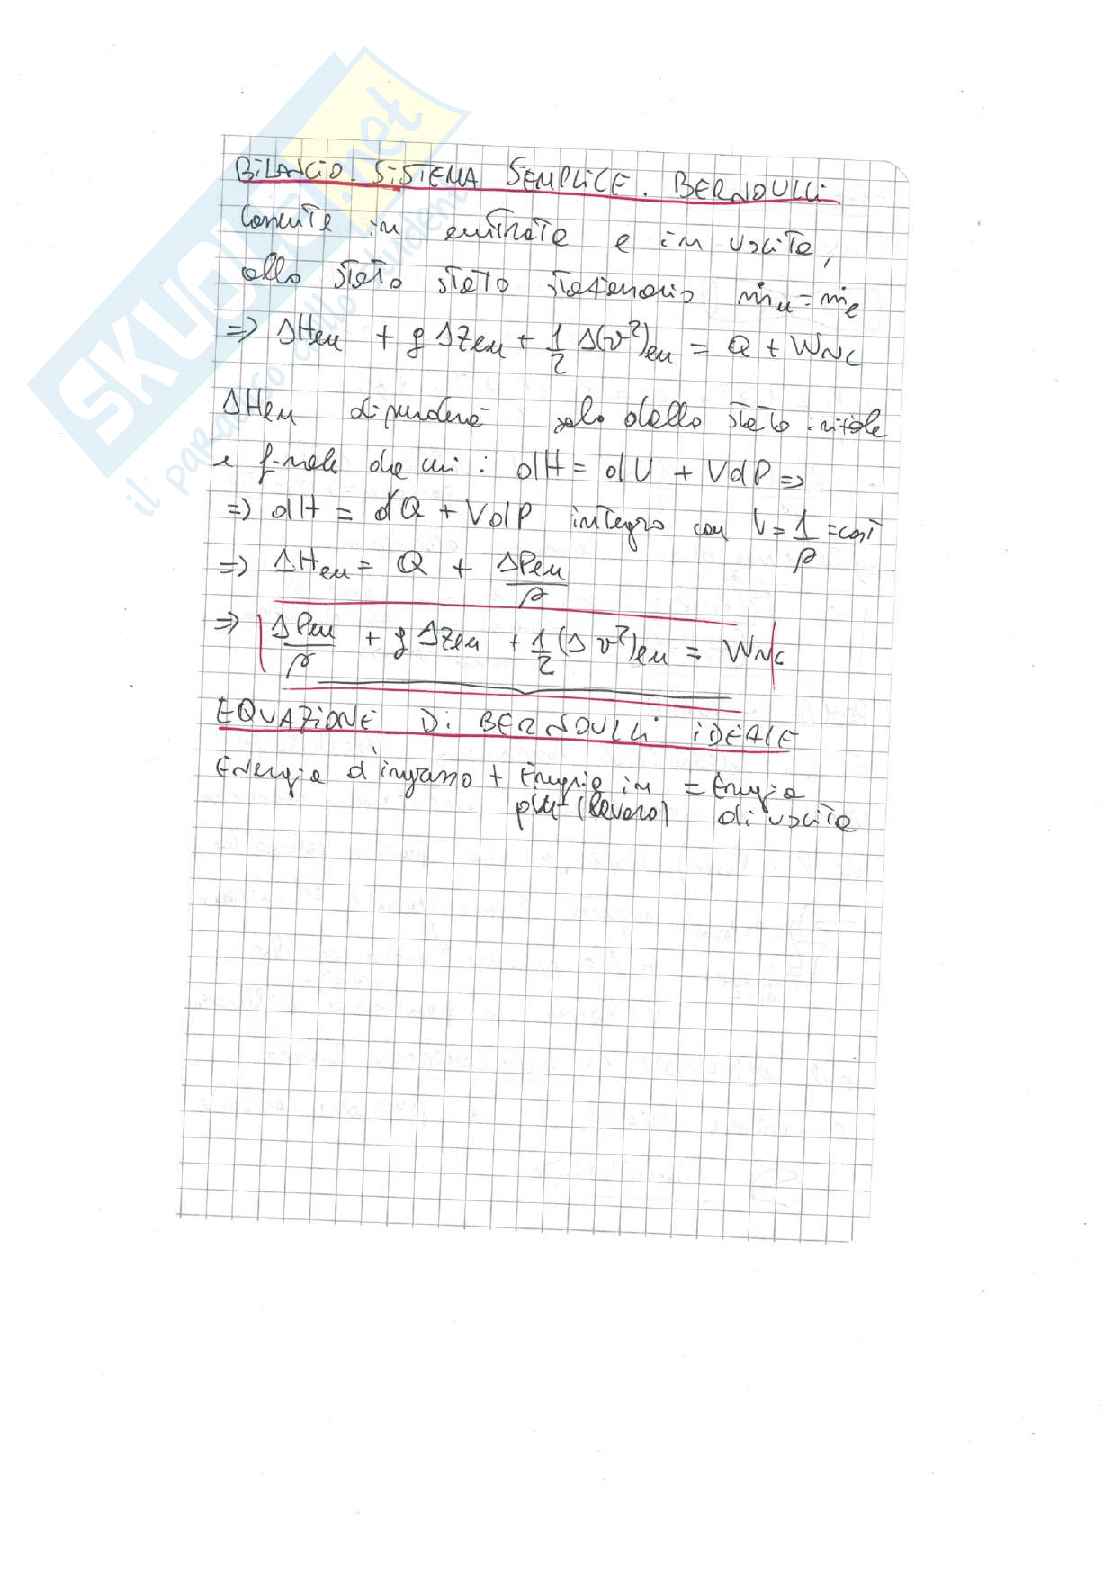 BILANCIO SISTEMA SEMPLICE. BERNOULLI
Corrente in entrata e in uscita,
allo stato stato stazionario ṁu = ṁe
=> ΔHeu + gΔzeu + 1/2 Δ(v²)eu = Q + WNC
ΔHeu dipenderà solo dallo stato iniziale
e finale da cui : dH = dU + VdP =>
=> dH = đQ + VdP integro con V = 1/ρ = cost
=> ΔHeu = Q + ΔPeu/ρ
=> ΔPeu/ρ + gΔzeu + 1/2 (Δv²)eu = WNC
EQUAZIONE DI BERNOULLI IDEALE
Energia d'ingresso + Energia in = Energia
più (lavoro) di uscita
SKUOLA.net
il paradiso dello studente